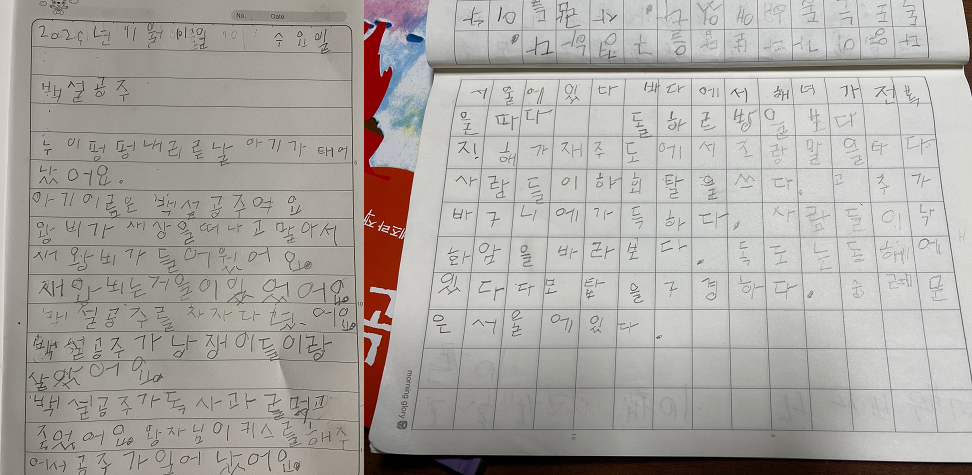 No. Date
2020년 11월 11일 수요일
백설공주
누이 펑펑 내리든 날 아기가 태어
났어요.
아기 이름은 백설공주여요
왕비가 세상을 떠나고 말아서
새 왕비가 들어왔어요.
새 왕비는 거울이 있었어요.
백설공주를 차자다녔어요.
백설공주가 난쟁이들이랑
살았어요.
백설공주가 독사과를 먹고
죽었어요. 왕자님이 키스를 해주
어서 공주가 일어났어요.
서울에 있다 바다에서 해녀가 전복
을 따다 돌하르방을 보다
진해가 제주도에서 조랑말을 타다.
사람들이 하회탈을 쓰다. 고추가
바구니에 가득하다. 사람들이 낙
화암을 바라보다. 독도는 동해에
있다 다보탑을 구경하다. 숭례문
은 서울에 있다.
morning glory